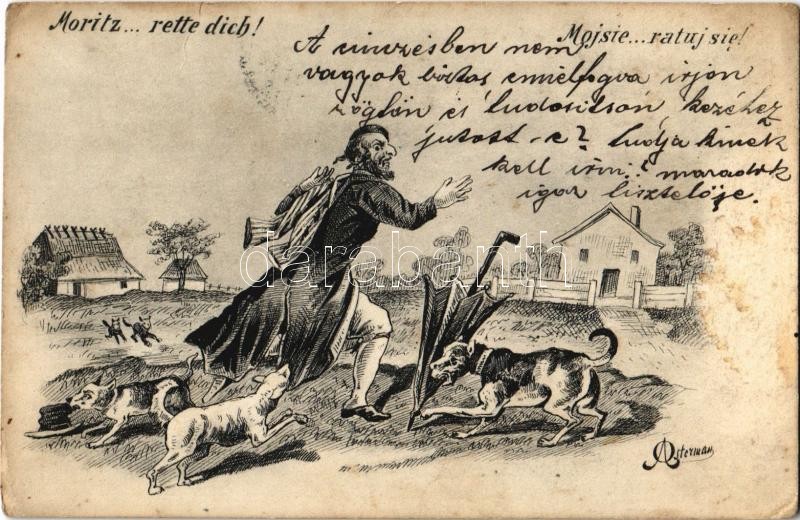 Moritz... rette dich!
Mojsie...ratuj się!
A cimzésben nem
vagyok biztos ennélfogva irjon
röglön és tudositson kezéhez
jutott-e? tudja kinek
kell irni! maradok
igaz tisztelője.
darabanth
AOsterman